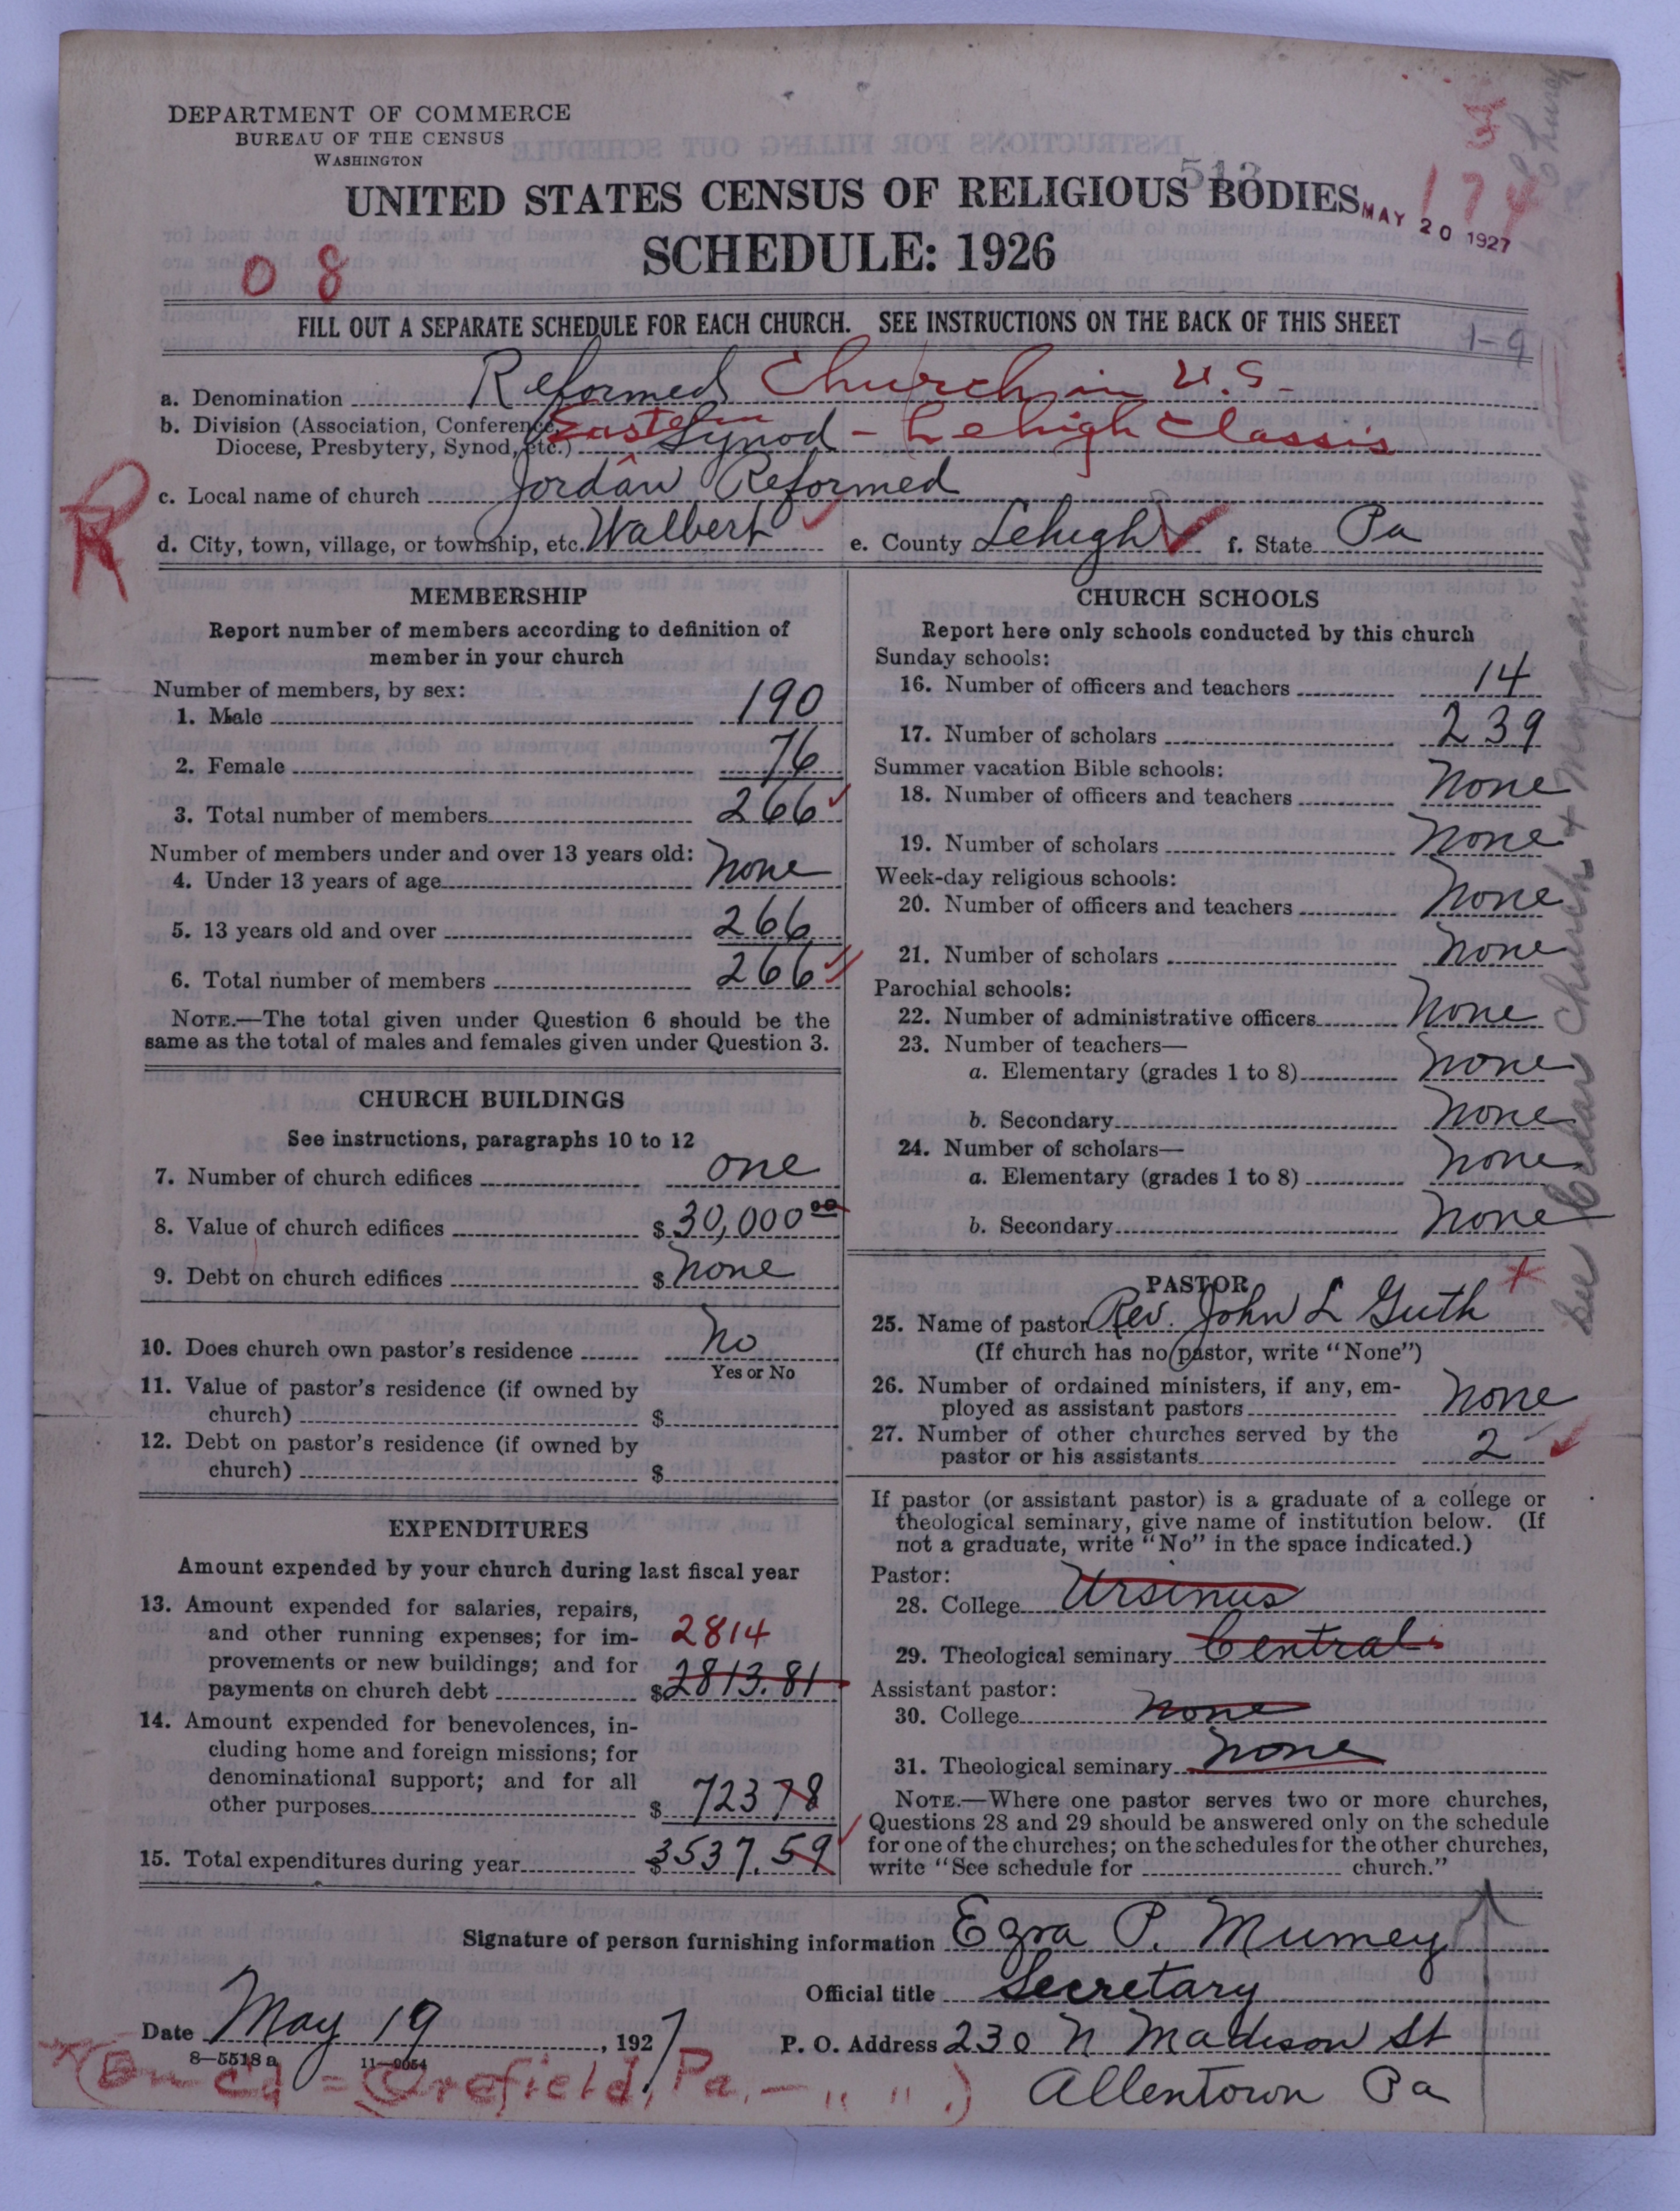 DEPARTMENT OF COMMERCE
BUREAU OF THE CENSUS
WASHINGTON
513
UNITED STATES CENSUS OF RELIGIOUS BODIES
SCHEDULE: 1926
3
174
MAY 20 1927
0 8
FILL OUT A SEPARATE SCHEDULE FOR EACH CHURCH. SEE INSTRUCTIONS ON THE BACK OF THIS SHEET
1-9
a. Denomination Reformed Church in U.S.
b. Division (Association, Conference,
Diocese, Presbytery, Synod, etc.) Eastern Synod - Lehigh Classis
c. Local name of church Jordan Reformed
R
d. City, town, village, or township, etc. Walbert e. County Lehigh f. State Pa
MEMBERSHIP
Report number of members according to definition of
member in your church
Number of members, by sex:
1. Male 190
2. Female 76
3. Total number of members 266
Number of members under and over 13 years old:
4. Under 13 years of age None
5. 13 years old and over 266
6. Total number of members 266
NOTE.—The total given under Question 6 should be the
same as the total of males and females given under Question 3.
CHURCH BUILDINGS
See instructions, paragraphs 10 to 12
7. Number of church edifices one
8. Value of church edifices $ 30,000 00
9. Debt on church edifices $ None
10. Does church own pastor's residence No
Yes or No
11. Value of pastor's residence (if owned by
church) $
12. Debt on pastor's residence (if owned by
church) $
EXPENDITURES
Amount expended by your church during last fiscal year
13. Amount expended for salaries, repairs,
and other running expenses; for im- 2814
provements or new buildings; and for
payments on church debt $ 2813.81
14. Amount expended for benevolences, in-
cluding home and foreign missions; for
denominational support; and for all
other purposes $ 723 78
15. Total expenditures during year $ 3537.59
CHURCH SCHOOLS
Report here only schools conducted by this church
Sunday schools:
16. Number of officers and teachers 14
17. Number of scholars 239
Summer vacation Bible schools:
18. Number of officers and teachers None
19. Number of scholars None
Week-day religious schools:
20. Number of officers and teachers None
21. Number of scholars None
Parochial schools:
22. Number of administrative officers None
23. Number of teachers—
a. Elementary (grades 1 to 8) None
b. Secondary None
24. Number of scholars—
a. Elementary (grades 1 to 8) None
b. Secondary None
PASTOR
25. Name of pastor Rev. John L Guth
(If church has no pastor, write "None")
26. Number of ordained ministers, if any, em-
ployed as assistant pastors None
27. Number of other churches served by the
pastor or his assistants 2
If pastor (or assistant pastor) is a graduate of a college or
theological seminary, give name of institution below. (If
not a graduate, write "No" in the space indicated.)
Pastor:
28. College Ursinus
29. Theological seminary Central
Assistant pastor:
30. College None
31. Theological seminary None
NOTE.—Where one pastor serves two or more churches,
Questions 28 and 29 should be answered only on the schedule
for one of the churches; on the schedules for the other churches,
write "See schedule for church."
See Cedar Church +
Church
Signature of person furnishing information Ezra P. Mumey
Official title Secretary
Date May 19, 1927
P. O. Address 230 N Madison St
Allentown Pa
8—5518 a 11—9054
= Orefield, Pa. — " " .)